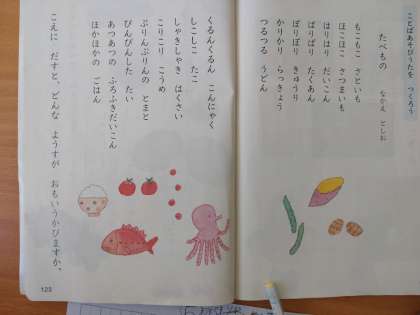 ことばあそびうたを つくろう
たべもの
なかえ としお
もこもこ さといも
ほこほこ さつまいも
はりはり だいこん
ぱりぱり たくあん
ぽりぽり きゅうり
かりかり らっきょう
つるつる うどん
くるんくるん こんにゃく
しこしこ たこ
しゃきしゃき はくさい
こりこり こうめ
ぷりんぷりんの とまと
ぴんぴんした たい
あつあつの ふろふきだいこん
ほかほかの ごはん
こえに だすと、どんな ようすが おもいうかびますか。
123